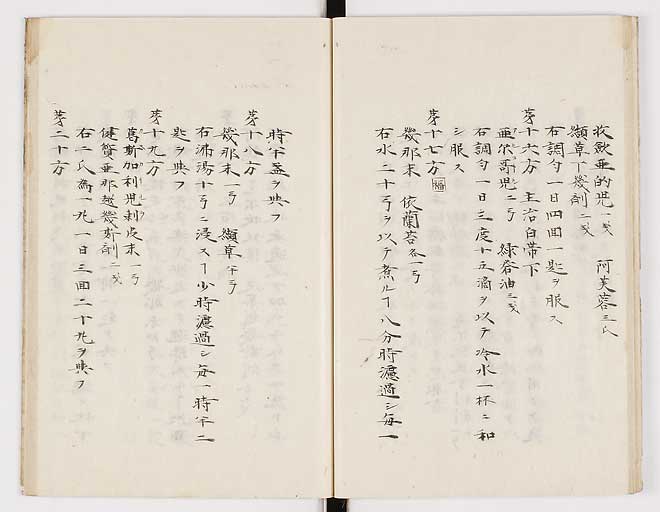 阿芙蓉三氏
纈草丁幾剤二戔
右調匀一日四回一匙ヲ服ス
㐧十六方 主治白帯下
右調匀一日三度十五滴ヲ以テ冷水一杯ニ和
シ服ス
㐧十七方
幾那末 依蘭苔各一弓
右水二十弓ヲ以テ煮ルヿ八分時濾過シ毎一
時半盞ヲ典フ
㐧十八方
幾那末一弓 纈草半弓
右沸湯十弓ニ浸スヿ少時濾過シ毎一時半二
匙ヲ典フ
㐧十九方
葛斯加利児剥皮末一弓
健質亜那越幾斯剤二戔
右二氏為一丸一日三回二十丸ヲ典フ
㐧二十方